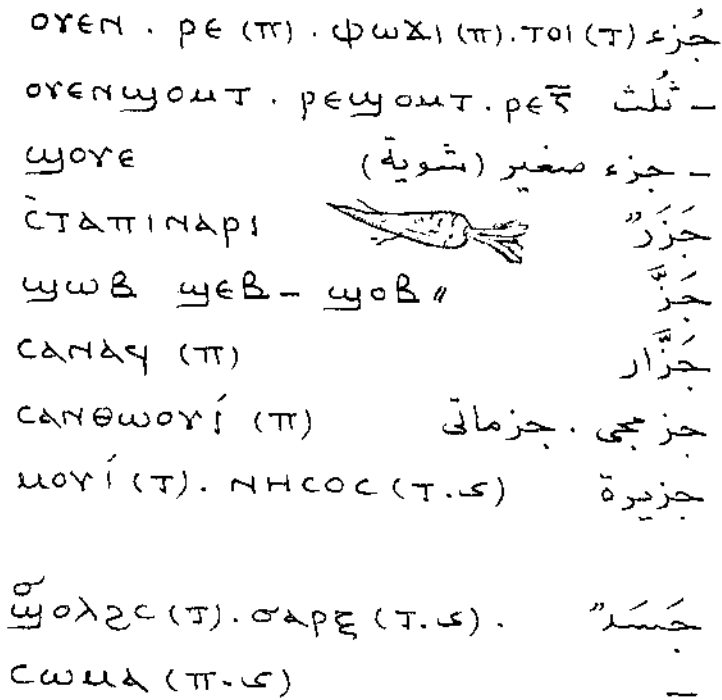 ⲟⲩⲉⲛ . ⲣⲉ (ⲡ) . ⲫⲱϫⲓ (ⲡ) . ⲧⲟⲓ (ⲧ) جُزء
ⲟⲩⲉⲛϣⲟⲙⲧ . ⲣⲉϣⲟⲙⲧ . ⲣⲉⲅ̅ – ثُلث
ϣⲟⲩⲉ – جزء صغير (شوية)
ⲥ̀ⲧⲁⲡⲓⲛⲁⲣⲓ جَزَرٌ
ϣⲱⲃ ϣⲉⲃ– ϣⲟⲃ〃 جَزَّ
ⲥⲁⲛⲁϥ (ⲡ) جَزَّار
ⲥⲁⲛⲑⲱⲟⲩⲓ́ (ⲡ) جزمجى . جزماتى
ⲙⲟⲩⲓ́ (ⲧ) . ⲛⲏⲥⲟⲥ (ⲧ.ى) جزيرة
ϣⲟⲗϩⲥ (ⲧ) . ⲥⲁⲣⲝ (ⲧ.ى) . جَسَدٌ
ⲥⲱⲙⲁ (ⲡ.ى) –